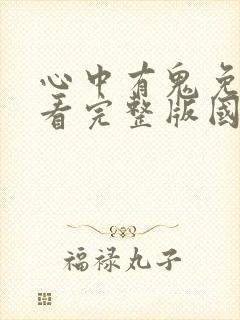 心中有鬼免
看完整版国
福禄丸子